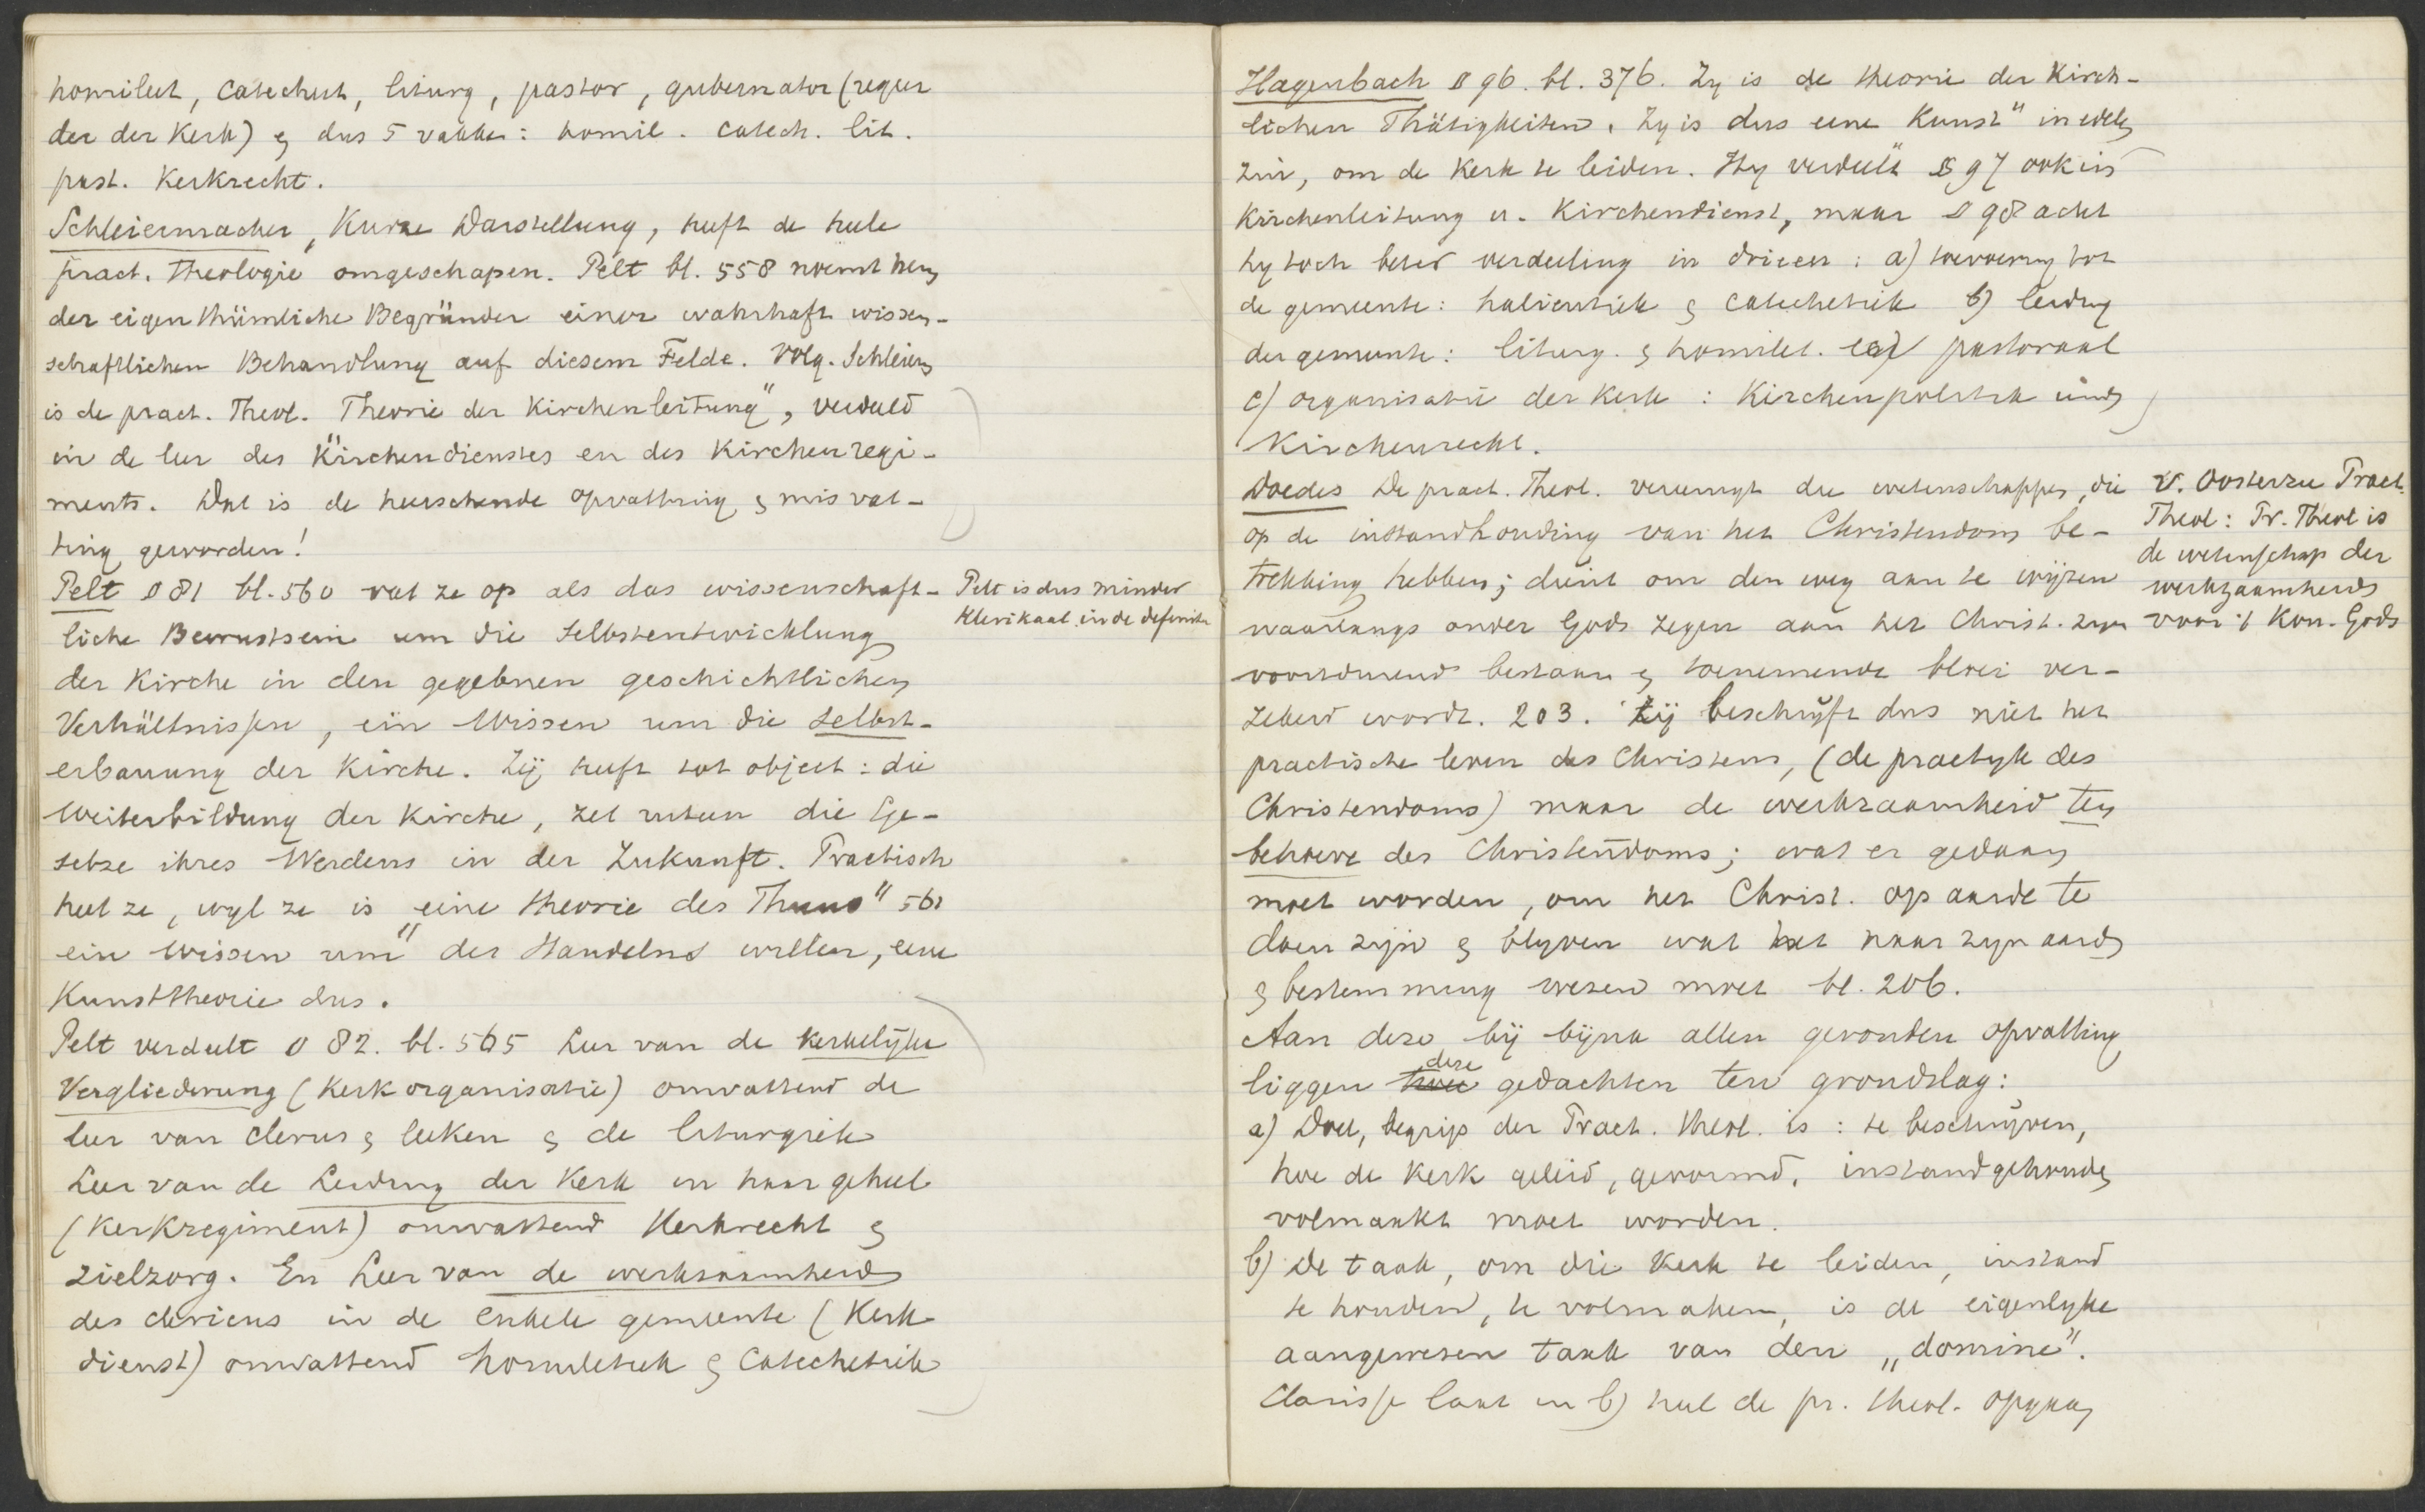 homileet, catecheet, liturg, pastor, gubernator (regeer
der der Kerk) & dus 5 vakken: homil. catech. lit.
past. Kerkrecht.
Schleiermacher, Kurze Darstellung, heeft de heele
pract. theologie omgeschapen. Pelt bl. 558 noemt hem
der eigenthümliche Begründer einer wahrhaft wissen-
schaftlichen Behandlung auf diesem Felde. Volg. Schleierm
is de pract. Theol. Theorie der Kirchenleitung", verdeeld
in de leer des Kirchendienstes en des Kirchenregi-
ments. Dat is de heerschende opvatting & misvat-
ting geworden!
Pelt § 81 bl. 560 vat ze op als das wissenschaft-
liche Bewustsein um die Selbstentwicklung
der Kirche in den gegebnen geschichtlichen
Verhältnissen, ein Wissen um die Selbst-
erbauung der Kirche. Zij heeft tot object: die
Weiterbildung der Kirche, zet uiteen die Ge-
setze ihres Werdens in der Zukunft. Practisch
heet ze, wyl ze is „eine theorie des Thuns" 561
ein Wissen um" des Handelns willen, eene
Kunsttheorie dus.
Pelt verdeelt § 82. bl. 565 Leer van de kerkelijke
Vergliederung (Kerkorganisatie) omvattend de
leer van clerus & leeken & de liturgiek
Leer van de Leiding der Kerk in haar geheel
(Kerkregiment) omvattend Kerkrecht &
zielzorg. En Leer van de werkzaamheid
des clericus in de enkele gemeente (Kerk
dienst) omvattend homiletiek & Catechetiek
Pelt is dus minder
klerikaal in de definitie
Hagenbach § 96. bl. 376. Zy is de theorie der Kirch-
lichen Thätigkeiten. Zy is dus eene Kunst" in edelen
zin, om de Kerk te leiden. Hy verdeelt § 97 ook in
Kirchenleitung u. Kirchendienst, maar § 98 acht
hy toch beter verdeeling in drieen: a) toevoering tot
de gemeente: halieutiek & catechetiek b) leiding
der gemeente: liturg. & homilet. pastoraal
c) organisatie der Kerk: Kirchenpolitik und
Kirchenrecht.
Doedes De pract. Theol. vereenigt die wetenschappen, die
op de instandhouding van het Christendom be-
trekking hebben; dient om den weg aan te wijzen
waarlangs onder Gods zegen aan het Christ. zyn
voortdurend bestaan & toenemende bloei ver-
zekerd wordt. 203. Zij beschrijft dus niet het
practische leven des Christens, (de practyk des
Christendoms) maar de werkzaamheid ten
behoeve des Christendoms; wat er gedaan
moet worden, om het Christ. op aarde te
doen zijn & blyven wat het naar zyn aard
& bestemming wezen moet bl. 206.
Aan deze bij bijna allen gevonden opvatting
liggen deze gedachten ten grondslag:
a) Doel, begrip der Pract. theol. is: te beschrijven,
hoe de Kerk geleid, gevormd, instandgehouden
volmaakt moet worden.
b) De taak, om die Kerk te leiden, instand
te houden, te volmaken, is de eigenlyke
aangewesen taak van den „domine".
Clarisse laat in b) heel de pr. theol. opgaan
V. Oosterzee Pract.
Theol: Pr. Theol is
de wetenschap der
werkzaamheid
voor 't Kon. Gods